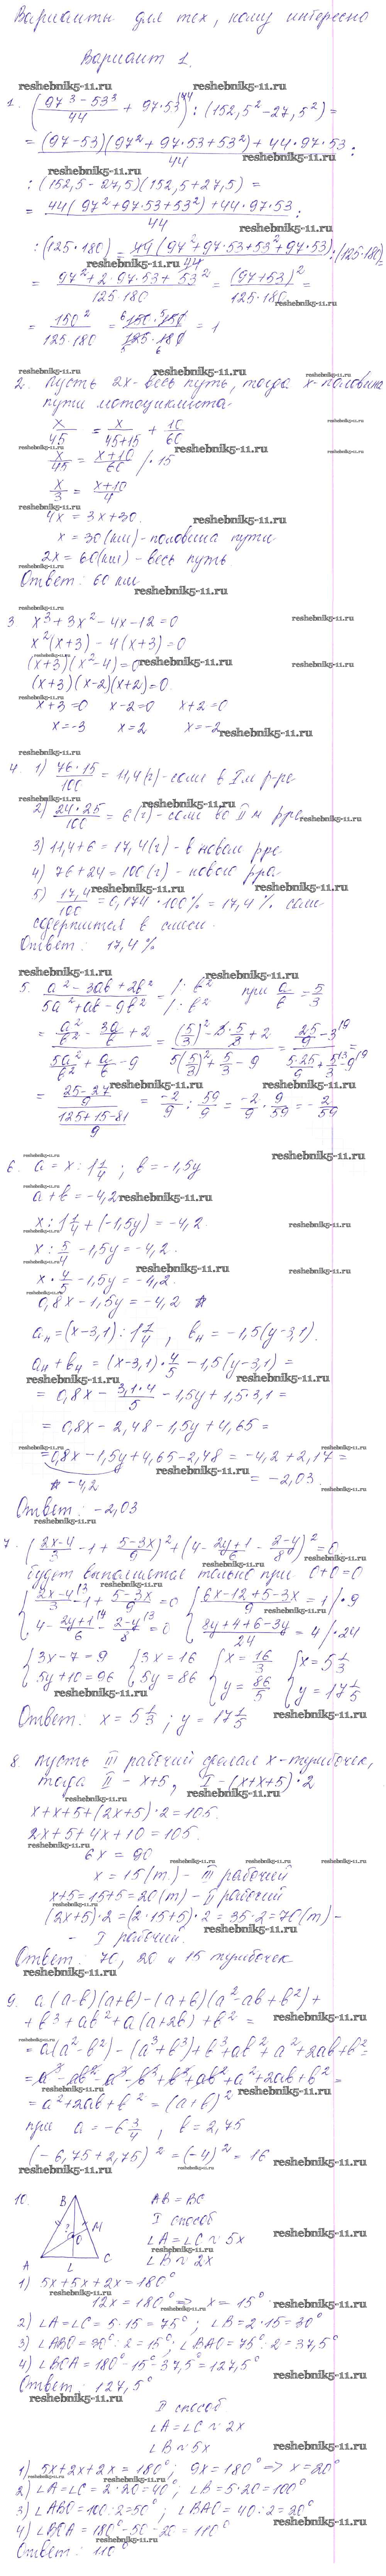 Варианты для тех, кому интересно
Вариант 1.
1. ((97³ - 53³)/44 + 97·53) : (152,5² - 27,5²) =
= ((97-53)(97² + 97·53 + 53²) + 44·97·53)/44 :
: (152,5 - 27,5)(152,5 + 27,5) =
= (44(97² + 97·53 + 53²) + 44·97·53)/44 :
: (125·180) = 44(97² + 97·53 + 53² + 97·53)/44 : (125·180) =
= (97² + 2·97·53 + 53²)/(125·180) = (97+53)²/(125·180) =
= 150²/(125·180) = (150·150)/(125·180) = 1
2. Пусть 2x - весь путь, тогда x - половина
пути мотоциклиста.
x/45 = x/(45+15) + 10/60
x/45 = (x+10)/60 /·15
x/3 = (x+10)/4
4x = 3x + 30.
x = 30 (км) - половина пути
2x = 60 (км) - весь путь
Ответ: 60 км
3. x³ + 3x² - 4x - 12 = 0
x²(x+3) - 4(x+3) = 0
(x+3)(x²-4) = 0
(x+3)(x-2)(x+2) = 0.
x+3=0 x-2=0 x+2=0
x=-3 x=2 x=-2
4. 1) 76·15/100 = 11,4 (г) - соли в I м р-ре
2) 24·25/100 = 6 (г) - соли во II м р-ре
3) 11,4 + 6 = 17,4 (г) - в новом р-ре
4) 76 + 24 = 100 (г) - нового р-ра
5) 17,4/100 = 0,174·100% = 17,4% соли
содержится в смеси.
Ответ: 17,4%
5. (a² - 3ab + 2b²)/(5a² + ab - 9b²) = /:b² /:b² при a/b = 5/3
= (a²/b² - 3a/b + 2)/(5a²/b² + a/b - 9) = ((5/3)² - 3·5/3 + 2)/(5(5/3)² + 5/3 - 9) = (25/9 - 3)/(5·25/9 + 5/3 - 9) =
= ((25-27)/9)/((125+15-81)/9) = -2/9 : 59/9 = -2/9 · 9/59 = -2/59
6. a = x : 1 1/4 ; b = -1,5y
a + b = -4,2
x : 1 1/4 + (-1,5y) = -4,2.
x : 5/4 - 1,5y = -4,2.
x · 4/5 - 1,5y = -4,2.
0,8x - 1,5y = -4,2 *
aн = (x-3,1) : 1 1/4, bн = -1,5(y-3,1).
aн + bн = (x-3,1)·4/5 - 1,5(y-3,1) =
= 0,8x - 3,1·4/5 - 1,5y + 1,5·3,1 =
= 0,8x - 2,48 - 1,5y + 4,65 =
= 0,8x - 1,5y + 4,65 - 2,48 = -4,2 + 2,17 =
* -4,2 = -2,03.
Ответ: -2,03
7. ((2x-4)/3 - 1 + (5-3x)/9)² + (4 - (2y+1)/6 - (2-y)/8)² = 0
будет выполняться только при 0+0=0
{(2x-4)/3 - 1 + (5-3x)/9 = 0 {(6x-12+5-3x)/9 = 1 /·9
4 - (2y+1)/6 - (2-y)/8 = 0 (8y+4+6-3y)/24 = 4 /·24
{3x-7=9 {3x=16 {x=16/3 {x=5 1/3
5y+10=96 5y=86 y=86/5 y=17 1/5
Ответ: x = 5 1/3 ; y = 17 1/5
8. Пусть III рабочий сделал x - тумбочек,
тогда II - x+5, I - (x+x+5)·2
x+x+5+(2x+5)·2=105.
2x+5+4x+10=105.
6x = 90
x = 15 (т) - III рабочий
x+5=15+5=20 (т) - II рабочий
(2x+5)·2=(2·15+5)·2=35·2=70 (т) -
- I рабочий.
Ответ: 70, 20 и 15 тумбочек
9. a(a-b)(a+b)-(a+b)(a²-ab+b²)+
+b³+ab²+a(a+2b)+b²=
=a(a²-b²)-(a³+b³)+b³+ab²+a²+2ab+b²=
=a³-ab²-a³-b³+b³+ab²+a²+2ab+b²=
=a²+2ab+b²=(a+b)²
при a=-6 3/4, b=2,75
(-6,75+2,75)²=(-4)²=16
10. B
M
O
A L C
AB = BC
I способ
∠A=∠C ~ 5x
∠B ~ 2x
1) 5x+5x+2x=180°
12x=180° => x=15°
2) ∠A=∠C=5·15=75°; ∠B=2·15=30°
3) ∠ABO=30°:2=15°; ∠BAO=75°:2=37,5°
4) ∠BOA=180°-15°-37,5°=127,5°
Ответ: 127,5°
II способ
∠A=∠C ~ 2x
∠B ~ 5x
1) 5x+2x+2x=180°; 9x=180° => x=20°
2) ∠A=∠C=2·20=40°; ∠B=5·20=100°
3) ∠ABO=100:2=50°; ∠BAO=40:2=20°
4) ∠BOA=180°-50-20=110°
Ответ: 110°
reshebnik5-11.ru